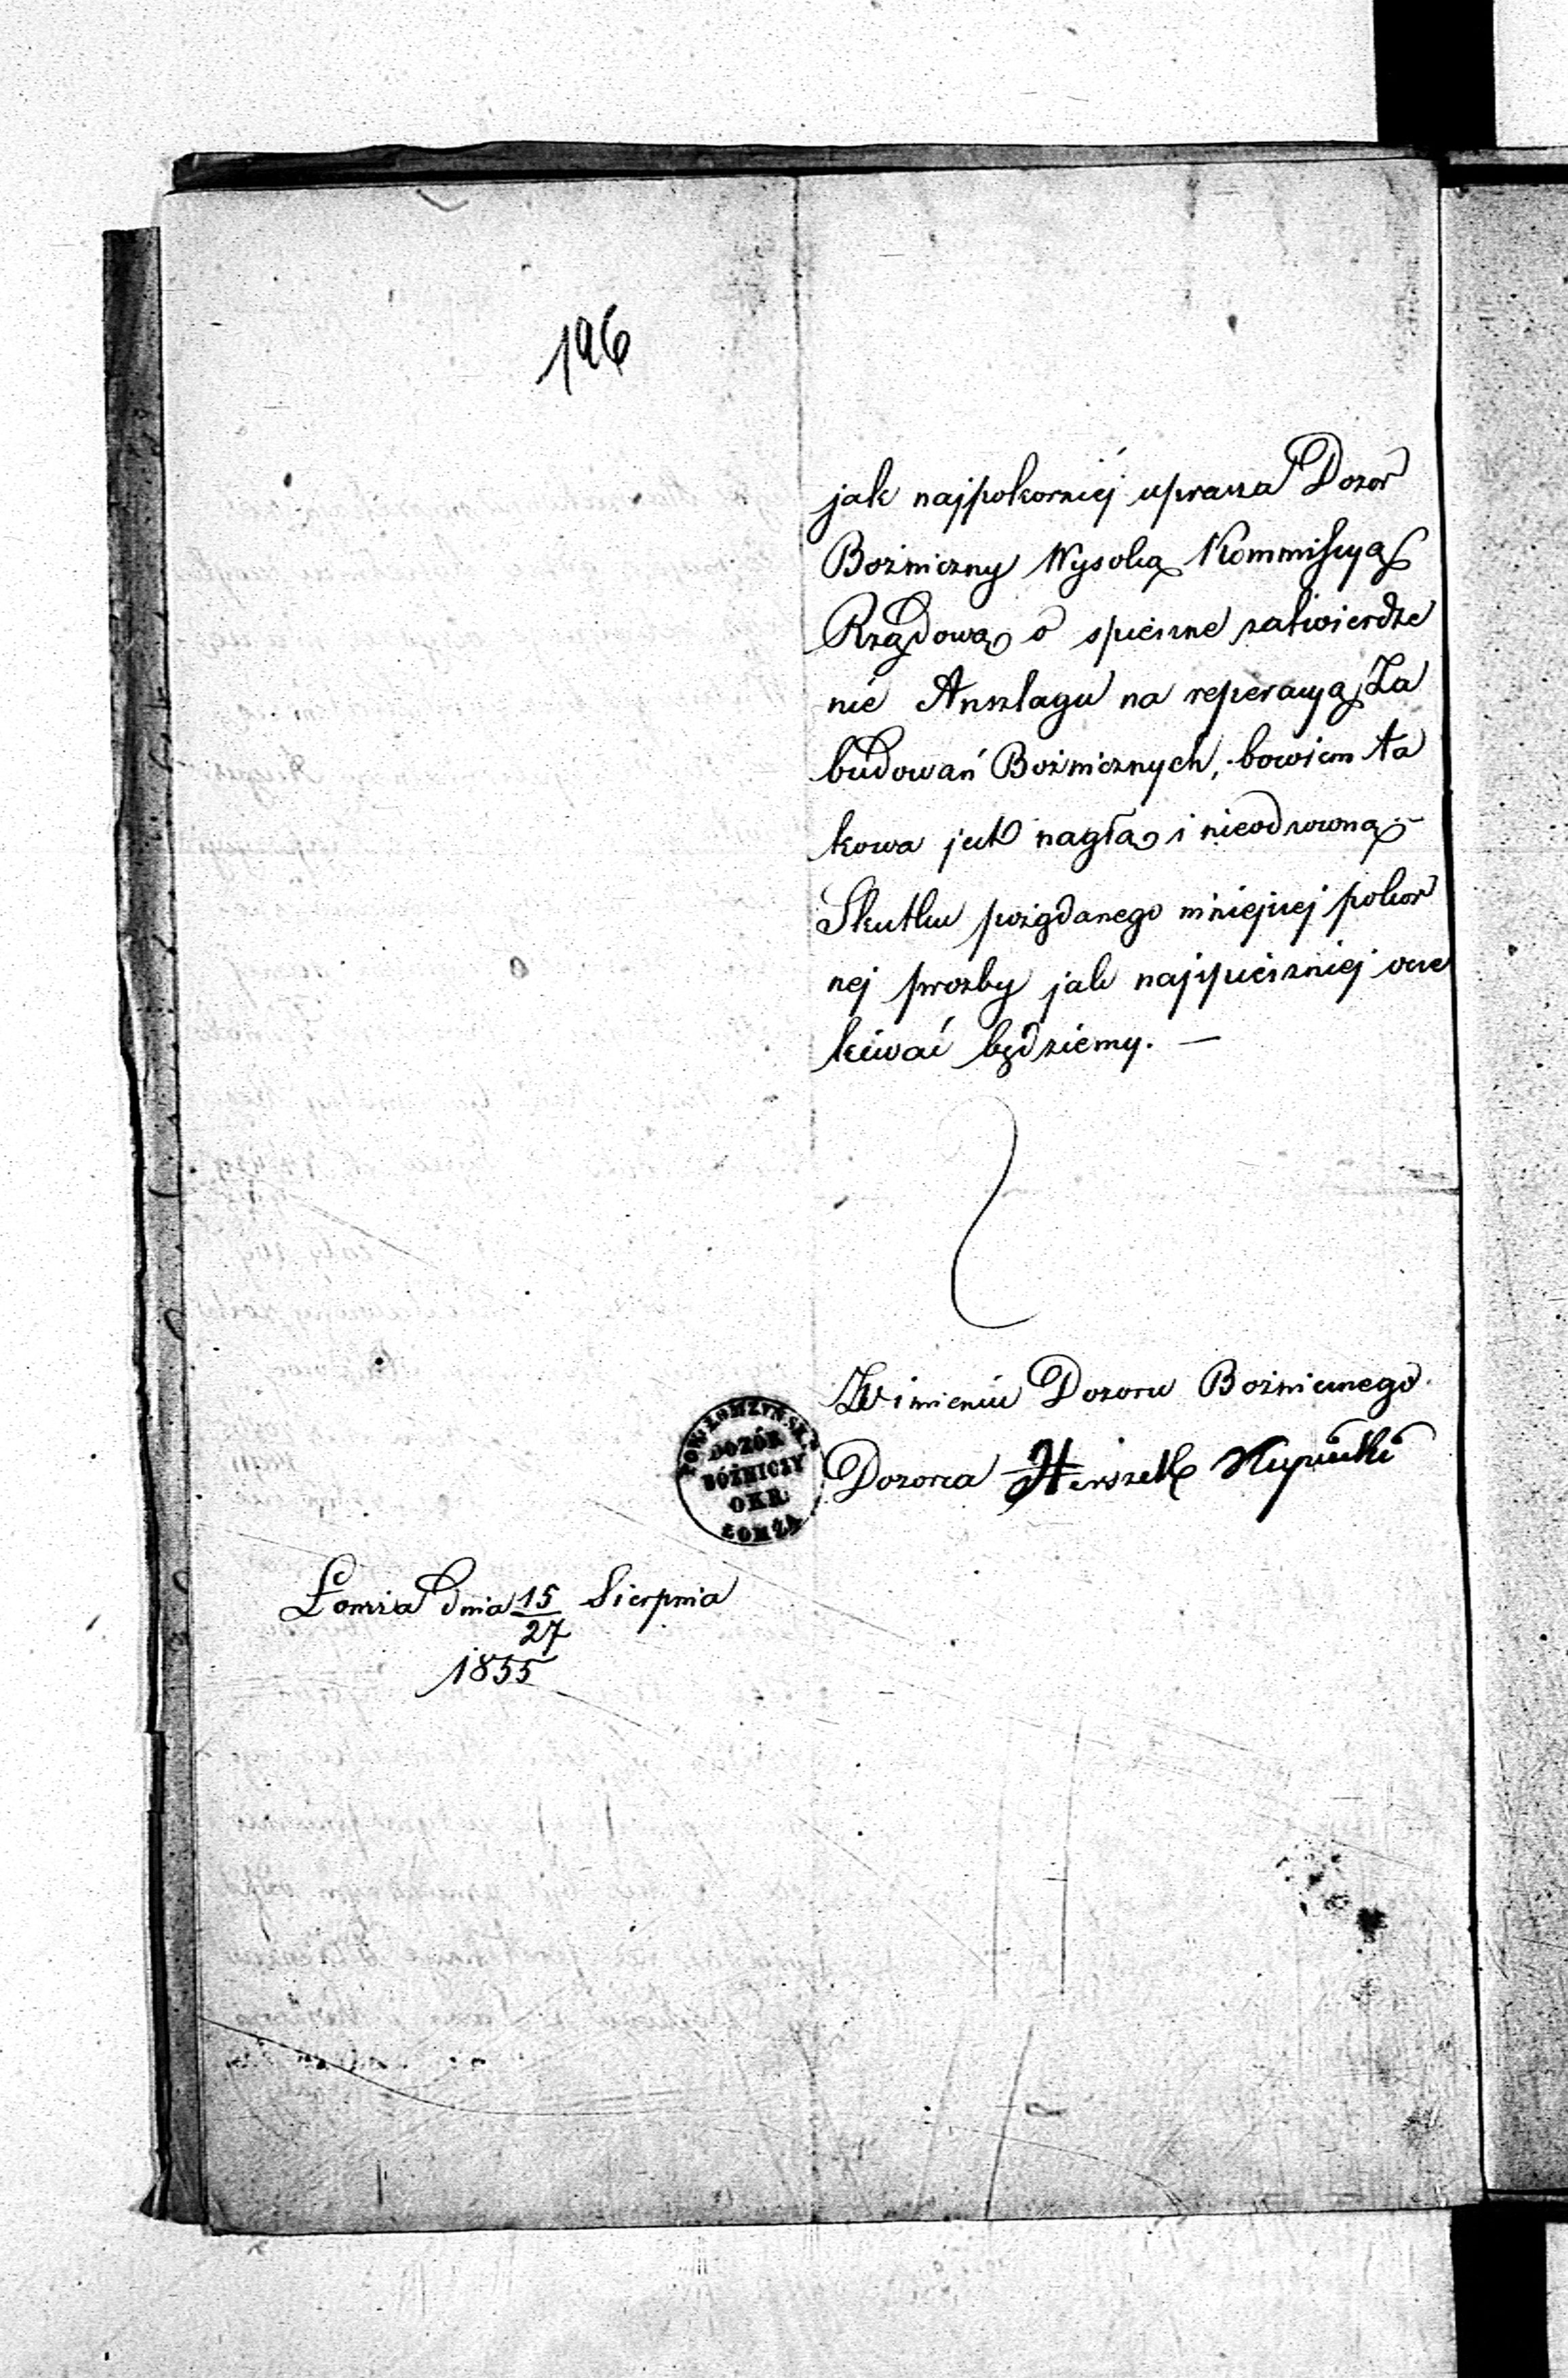 196
jak najpokorniéj uprasza Dozór
Bożniczny Wysoką Kommissyą
Rządową o spieszne zatwierdze
nie Anszlagu na reperacyą Za
budowań Bożnicznych, bowiem ta
kowa jest nagłą i nieodzowną.–
Skutku pożądanego niniejszej pokor
nej prozby jak najspieszniej ocze
kiwać będziemy. —
W imieniu Dozoru Bożnicznego
Dozorca Herszek
POW. ŁOMZYŃSKI
DOZÓR
BÓŻNICZY
OKR:
ŁOMŻA
Łomza dnia 15/27 Sierpnia
1855